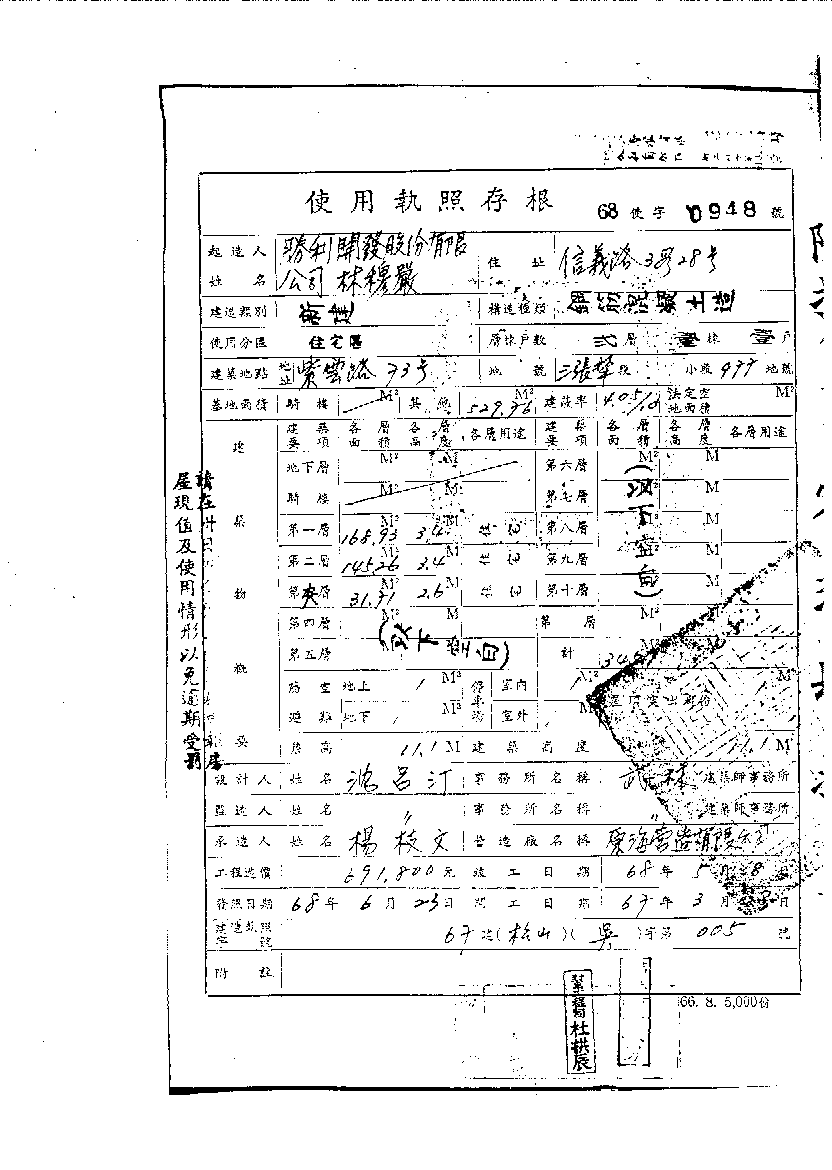 使用執照存根 68 使字 0948 號
起造人姓名 勝利開發股份有限公司 林穆嚴 住址 信義路3段28号
建造類別 構造種類 鋼筋混凝土造
使用分區 住宅區 層棟戶數 弐層 壹棟 壹戶
建築地點 地址 紫雲路73号 地號 三張犂段 小段 477 地號
基地面積 騎樓 M² 其他 529.76 M² 建蔽率 法定空地面積 M²
建築物概要
建築要項 各層面積 各層高度 各層用途 建築要項 各層面積 各層高度 各層用途
地下層 M² M 第六層 M² M
騎樓 M² M 第七層 M² M
第一層 168.93 M² 3.4 M 住宅 第八層 M² M
第二層 145.26 M² 3.4 住宅 第九層 M² M
第夾層 31.71 M² 2.6 住宅 第十層 M² M
第四層 M² M 第 層 M² M
第五層 計
(以下空白)
(以下空白)
防空避難 地上 / M² 停車場 室內 / M²
地下 / M² 室外 / M²
簷高 11.1 M 建築高度 11.1 M
設計人 姓名 沈呂汀 事務所名稱 武林 建築師事務所
監造人 姓名 〃 事務所名稱 〃 建築師事務所
承造人 姓名 楊枝文 營造廠名稱 東海營造有限公司
工程造價 691,800元 竣工日期 68年5月8日
發照日期 68年6月23日 開工日期 67年3月日
建造執照字號 67建(松山)(吳)字第005號
附註
66. 8. 5,000份
杜拱辰
屋現值及使用情形以免逾期受罰